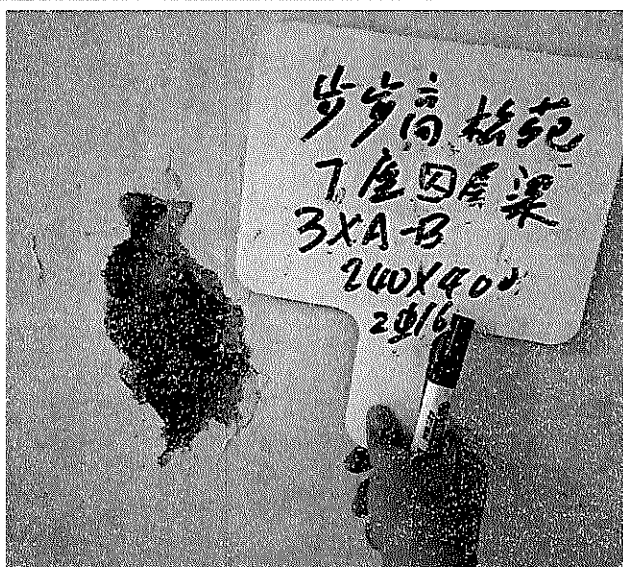 步步高格苑
7座四层梁
3XA-B
240X400
2φ16